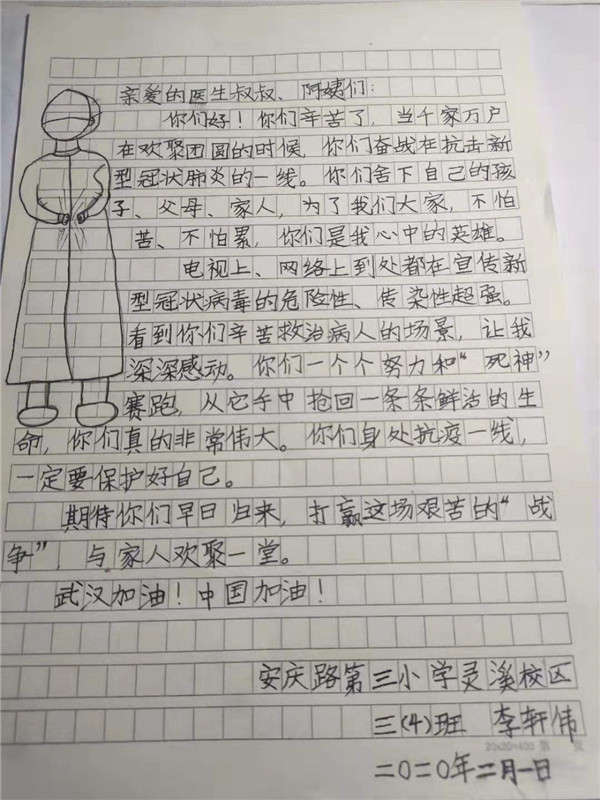 亲爱的医生叔叔、阿姨们：
你们好！你们辛苦了，当千家万户
在欢聚团圆的时候，你们奋战在抗击新
型冠状肺炎的一线。你们舍下自己的孩
子、父母、家人，为了我们大家，不怕
苦、不怕累，你们是我心中的英雄。
电视上、网络上到处都在宣传新
型冠状病毒的危险性、传染性超强。
看到你们辛苦救治病人的场景，让我
深深感动。你们一个个努力和“死神”
赛跑，从它手中抢回一条条鲜活的生
命，你们真的非常伟大。你们身处抗疫一线，
一定要保护好自己。
期待你们早日归来，打赢这场艰苦的“战
争”，与家人欢聚一堂。
武汉加油！中国加油！
安庆路第三小学灵溪校区
三（4）班 李轩伟
20x20=400 第 页
二〇二〇年二月一日